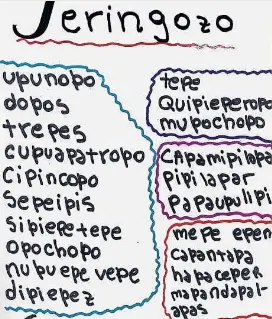 Jeringozo
upunopo
dopos
trepes
cupuapatropo
cipincopo
sepeipis
sipiepetepe
opochopo
nupuepevepe
dipiepez
tepe
Quipieperope
mupochopo
capamipilapa
pipilapar
papaupulipi
mepe epen
capantapa
hapaceper
mapandapal-
apas